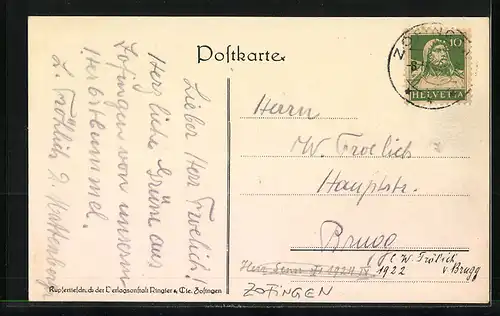 Postkarte.
ZOFINGEN
10
HELVETIA
Lieber Herr Froelich!
Herzliche Grüsse aus
Zofingen von unserem
Herbstbummel.
L. Fröhlich
Herrn
W. Froelich
Hauptstr.
Brugg
W. Frölich
1922 v Brugg
ZOFINGEN
Kupfertiefdruck der Verlagsanstalt Ringier & Cie. Zofingen